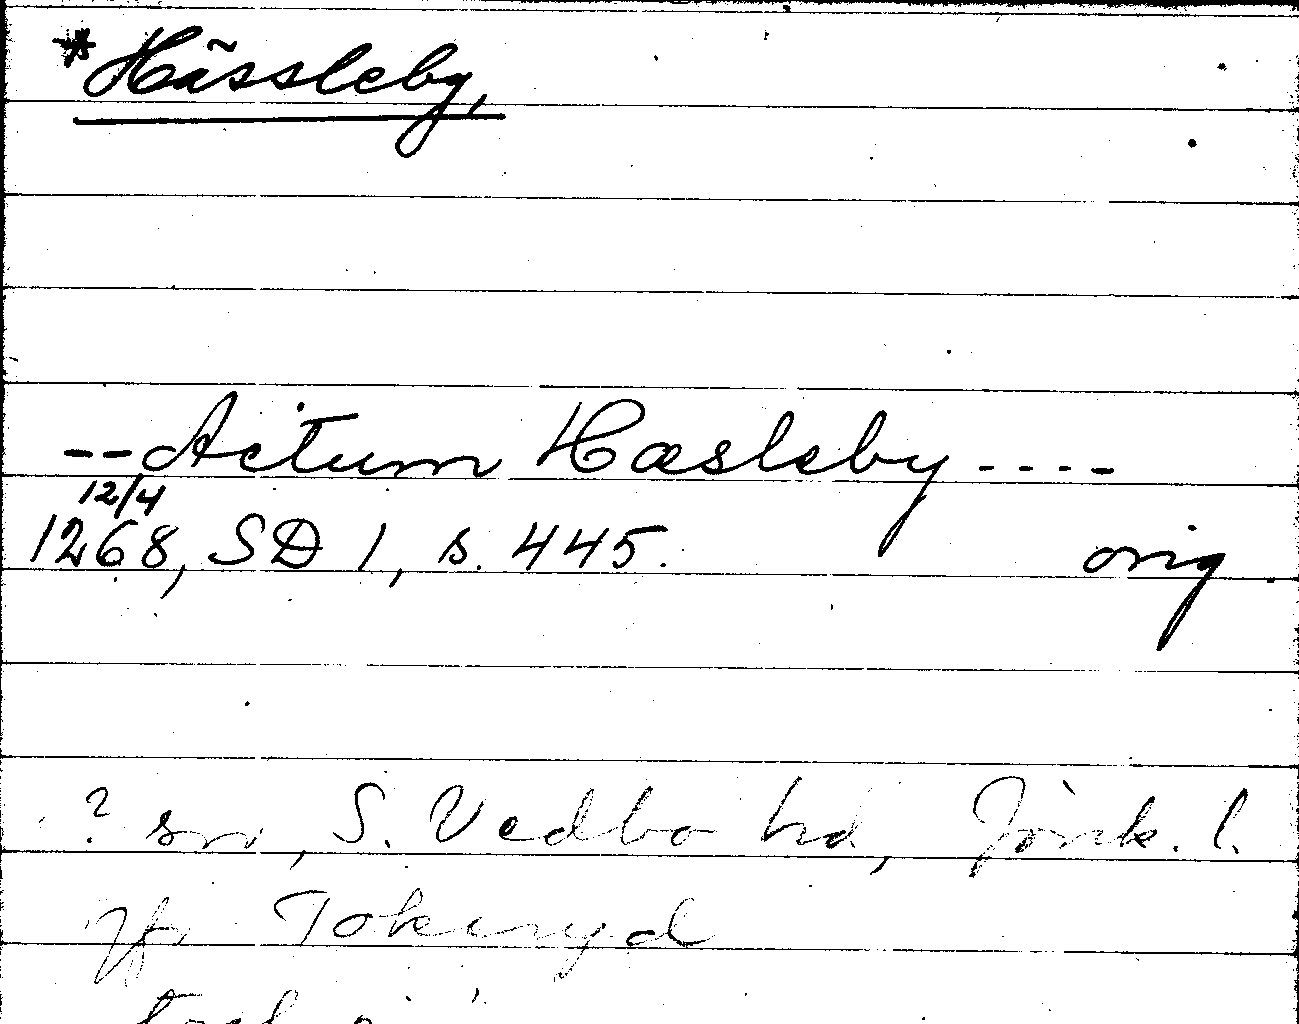 *Hässleby,
--Actum Hæsleby ....-
12/4
1268, SD 1, s. 445. orig
? sn, S. Vedbo hd, Jönk. l.
jfr Tokeryd